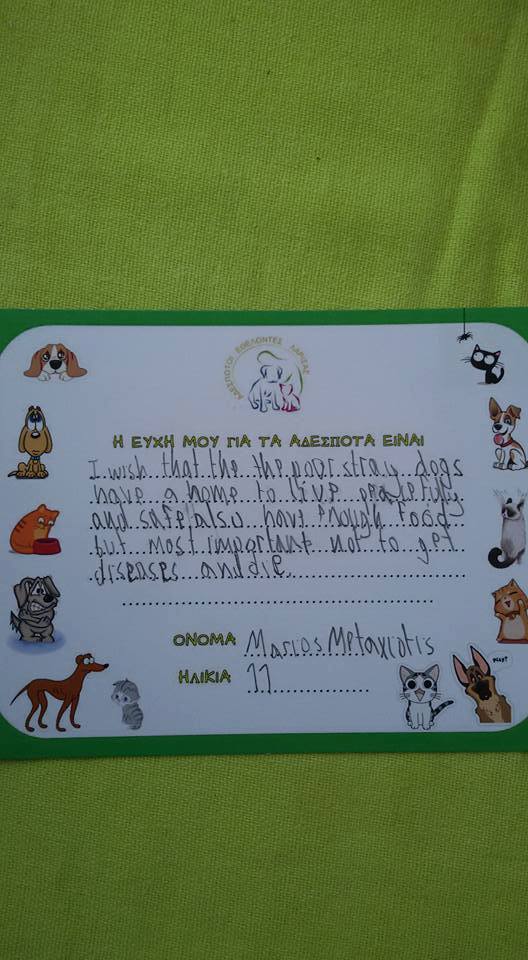 ΑΔΕΣΠΟΤΟΙ ΕΘΕΛΟΝΤΕΣ ΛΑΡΙΣΑΣ
Η ΕΥΧΗ ΜΟΥ ΓΙΑ ΤΑ ΑΔΕΣΠΟΤΑ ΕΙΝΑΙ
I wish that the the poor stray dogs
have a home to live
and safe also have enough food
but most important not to get
diseases and die.
ΟΝΟΜΑ Marios Metaxiotis
ΗΛΙΚΙΑ 11
PLAY?